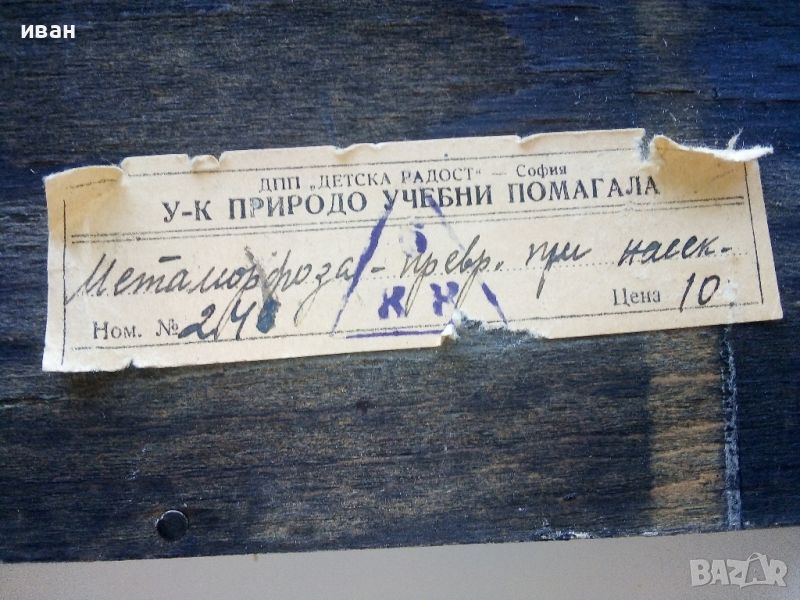 иван
ДПП „ДЕТСКА РАДОСТ" — София
У-К ПРИРОДО УЧЕБНИ ПОМАГАЛА
Метаморфоза - превр. при насек-
Ном. № Цена 10.
К Н
BAZAR